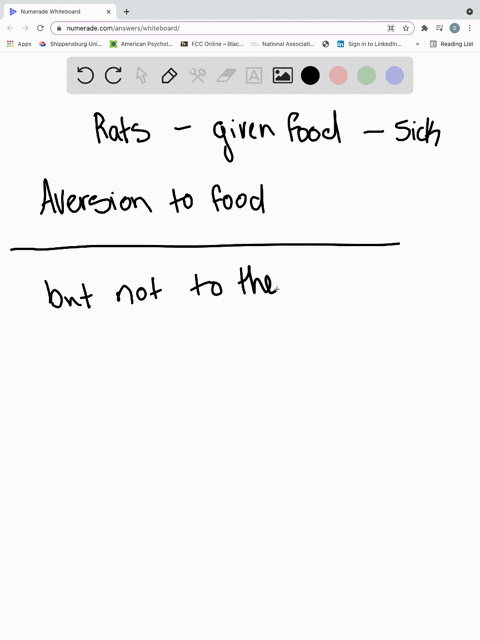 Numerade Whiteboard
numerade.com/answers/whiteboard/
Apps Shippensburg Uni... American Psychol... FCC Online – Blac... National Associati... Sign in to LinkedIn... » Reading List
A
Rats – given food – sick
Aversion to food
but not to the